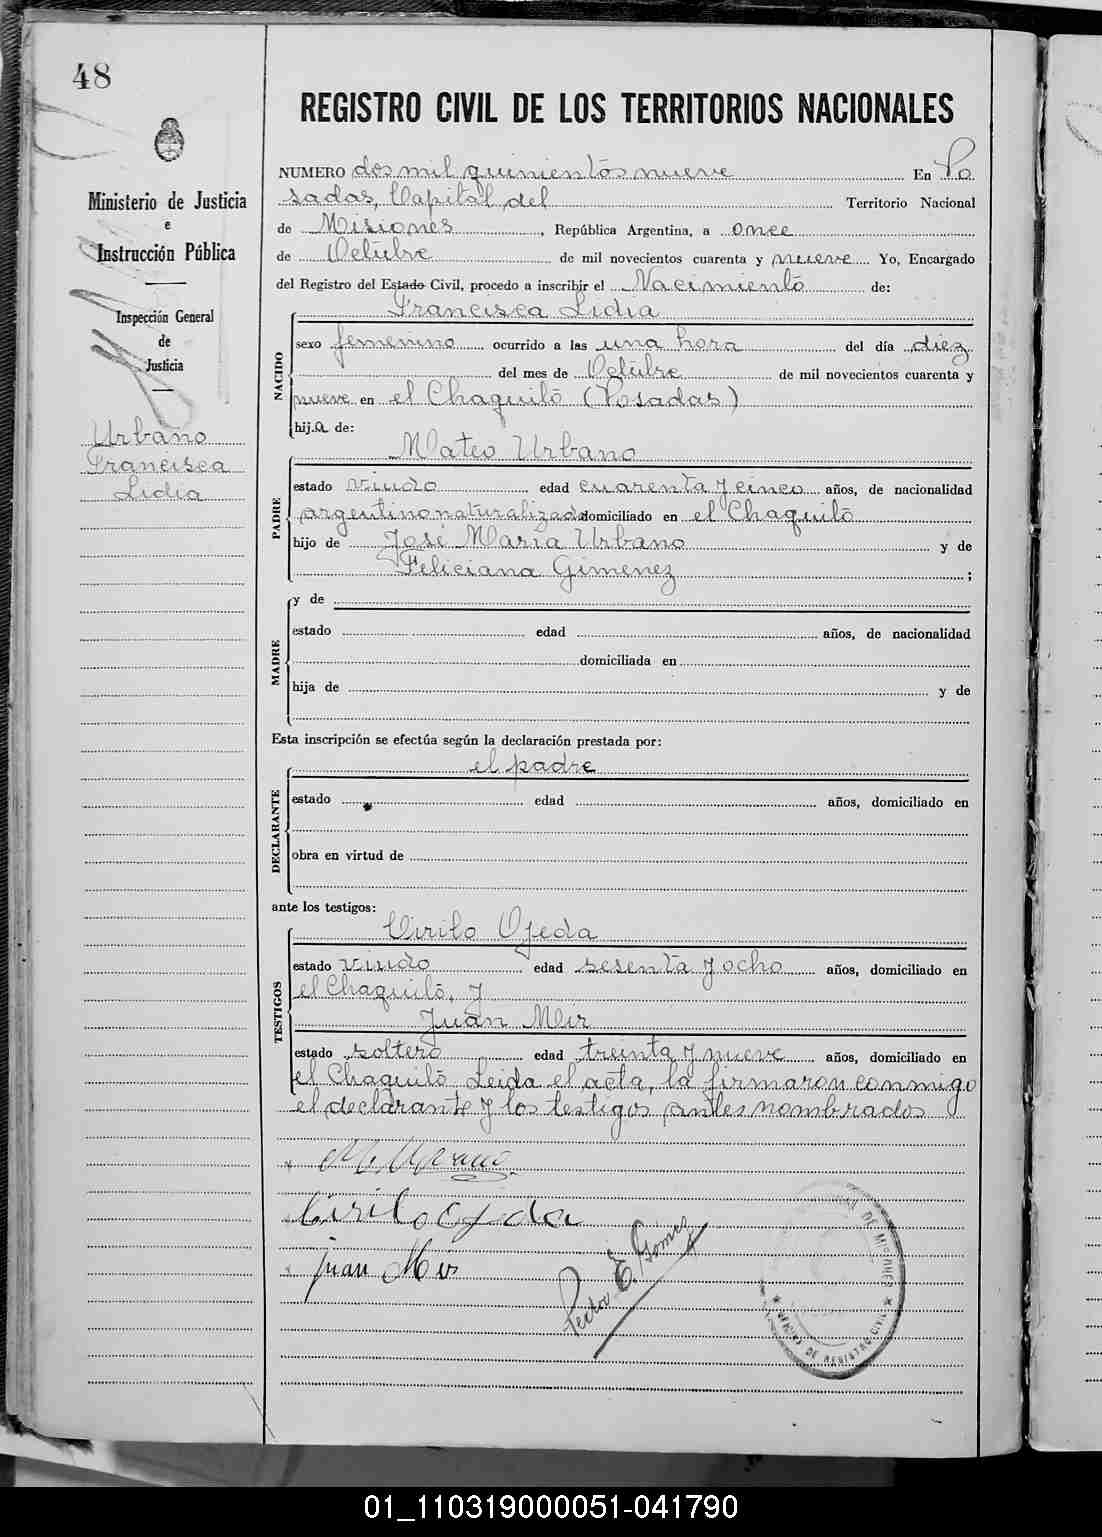 48
Ministerio de Justicia
e
Instrucción Pública
Inspección General
de
Justicia
Urbano
Francisca
Lidia
REGISTRO CIVIL DE LOS TERRITORIOS NACIONALES
NUMERO dos mil quinientos nueve En Po
sadas, Capital del Territorio Nacional
de Misiones, República Argentina, a once
de Octubre de mil novecientos cuarenta y nueve Yo, Encargado
del Registro del Estado Civil, procedo a inscribir el Nacimiento de:
Francisca Lidia
NACIDO
sexo femenino ocurrido a las una hora del día diez
del mes de Octubre de mil novecientos cuarenta y
nueve en el Chaquito (Posadas)
hija de:
Mateo Urbano
PADRE
estado viudo edad cuarenta y cinco años, de nacionalidad
argentino naturalizado domiciliado en el Chaquito
hijo de José María Urbano y de
Feliciana Gimenez ;
MADRE
y de
estado edad años, de nacionalidad
domiciliada en
hija de y de
Esta inscripción se efectúa según la declaración prestada por:
el padre
DECLARANTE
estado edad años, domiciliado en
obra en virtud de
ante los testigos:
Cirilo Ojeda
TESTIGOS
estado viudo edad sesenta y ocho años, domiciliado en
el Chaquito, y
Juan Mir
estado soltero edad treinta y nueve años, domiciliado en
el Chaquito Leida el acta, la firmaron conmigo
el declarante y los testigos antes nombrados
M. Urbano
Cirilo Ojeda
Juan Mir
E. Gómez
DE MISIONES
OFICINA DE REGISTRO CIVIL
01_110319000051-041790